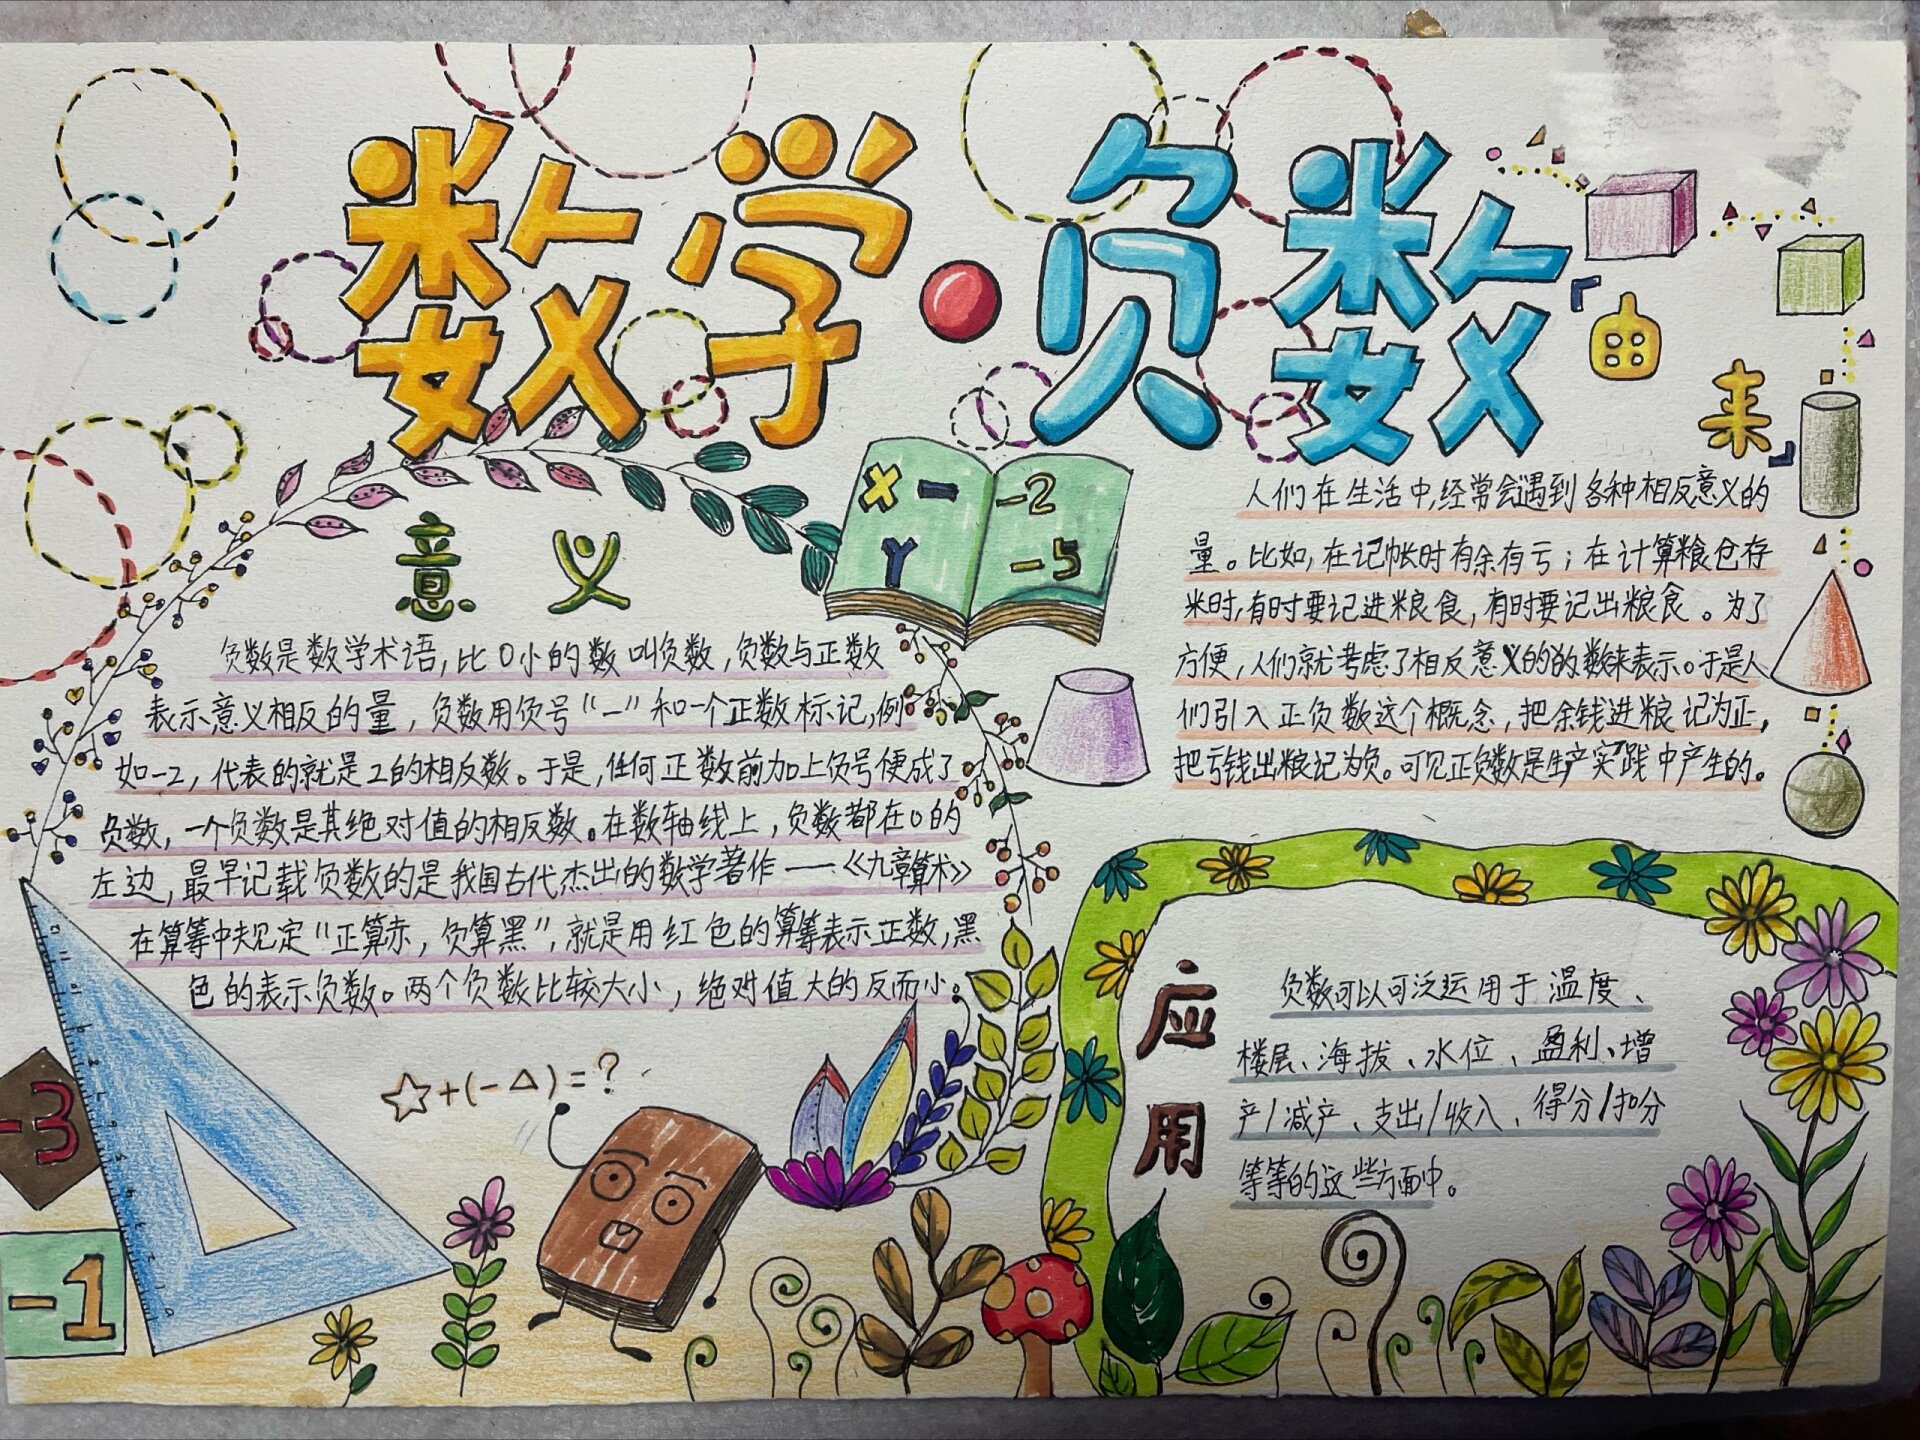 数学·负数
意义
负数是数学术语，比0小的数叫负数，负数与正数
表示意义相反的量，负数用负号“－”和一个正数标记，例
如-2，代表的就是2的相反数。于是，任何正数前加上负号便成了
负数，一个负数是其绝对值的相反数。在数轴线上，负数都在0的
左边，最早记载负数的是我国古代杰出的数学著作——《九章算术》
在算筹中规定“正算赤，负算黑”，就是用红色的算筹表示正数，黑
色的表示负数。两个负数比较大小，绝对值大的反而小。
☆+(-△)=?
-3
-1
X - -2
Y -5
「由来」
人们在生活中，经常会遇到各种相反意义的
量。比如，在记帐时有余有亏；在计算粮仓存
米时，有时要记进粮食，有时要记出粮食。为了
方便，人们就考虑了相反意义的的数来表示。于是人
们引入正负数这个概念，把余钱进粮记为正，
把亏钱出粮记为负。可见正负数是生产实践中产生的。
应用
负数可以可泛运用于温度、
楼层、海拔、水位、盈利、增
产/减产、支出/收入、得分/扣分
等等的这些方面中。